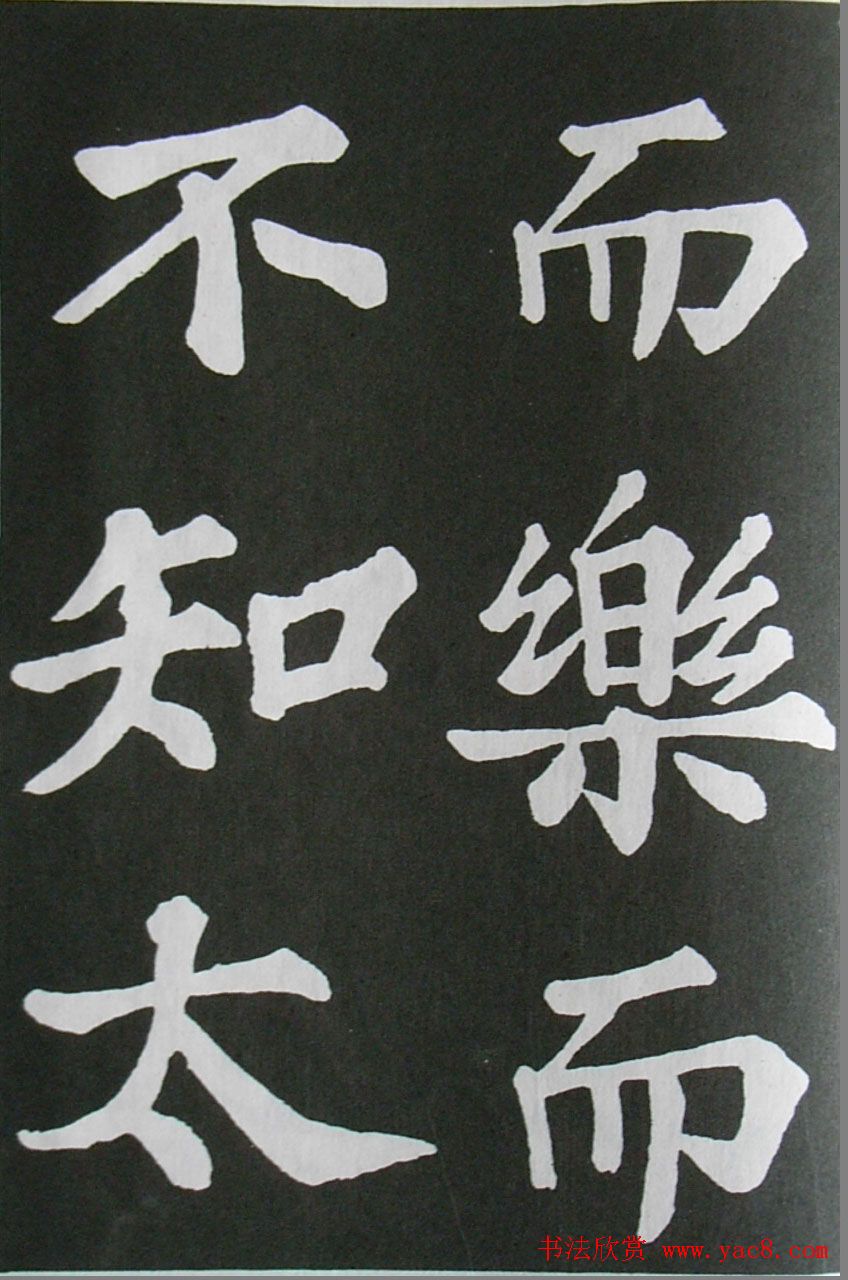 而樂而
不知太
书法欣赏 www.yac8.com